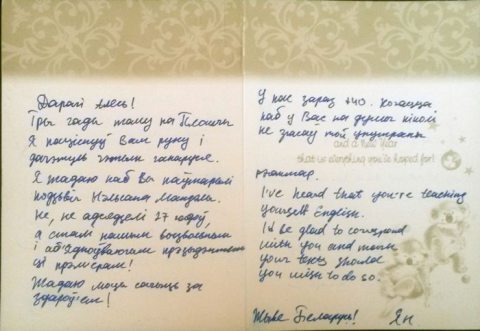 Дарагі Алесь!
Тры гады таму на Плошчы
Я паціснуў Вам руку і
дагэтуль гэтым ганаруся.
Я жадаю каб Вы паўтаралі
подзвіг Нэльсана Мандэлы.
Не, не адседзелі 27 гадоў,
а сталі нашым
і прэзідэнтам
ці прэм'ерам!
Жадаю моцы сачыць за
здароўем!
У нас зараз +40. Хочацца
каб у Вас на душы ніколі
не згасаў той унутраны
and a New Year
that is everything you've hoped for!
I've heard that you're teaching
yourself English.
I'd be glad to correspond
with you and
your texts should
you wish to do so.
Жыве Беларусь! Ян